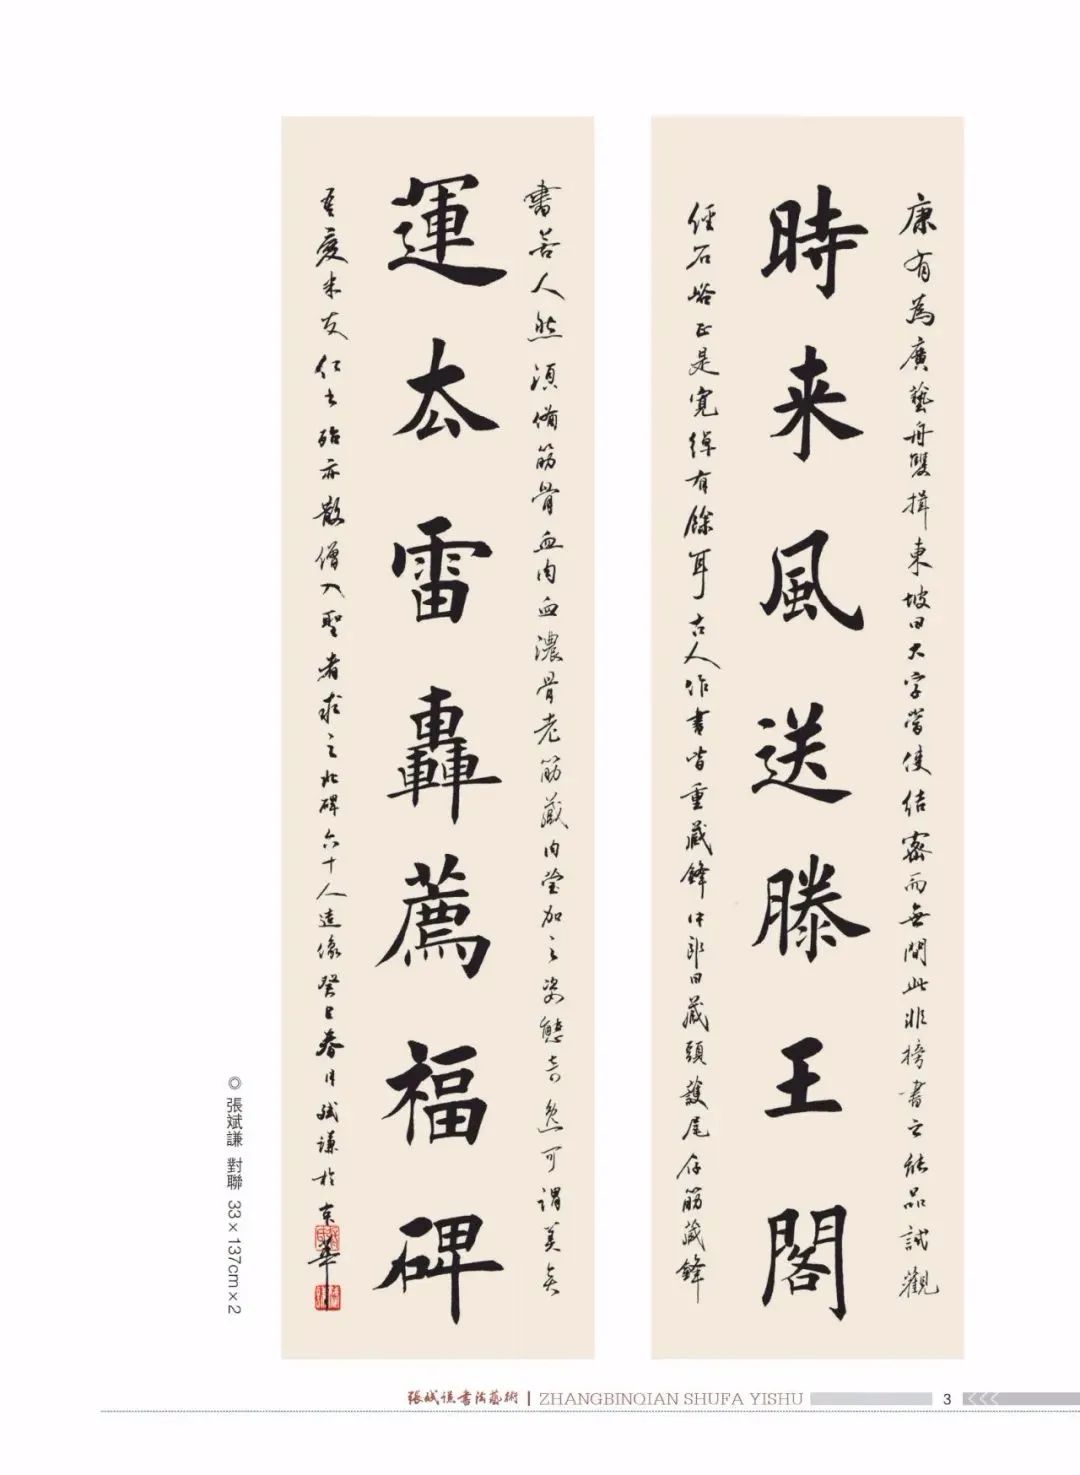 康有為廣藝舟雙揖東坡曰大字當使結密而無間此非榜書之能品試觀
時来風送滕王閣
經石峪正是寬綽有餘耳古人作書皆重藏鋒中郎曰藏頭護尾存筋藏鋒
書若人然須備筋骨血肉血濃骨老筋藏肉瑩加之姿態奇逸可謂美矣
運去雷轟薦福碑
吾愛米友仁書殆亦散僧入聖者求之北碑六十人造像癸巳春月斌謙於京華
◎ 張斌謙 對聯 33×137cm×2
張斌謙書法藝術 | ZHANGBINQIAN SHUFA YISHU 3